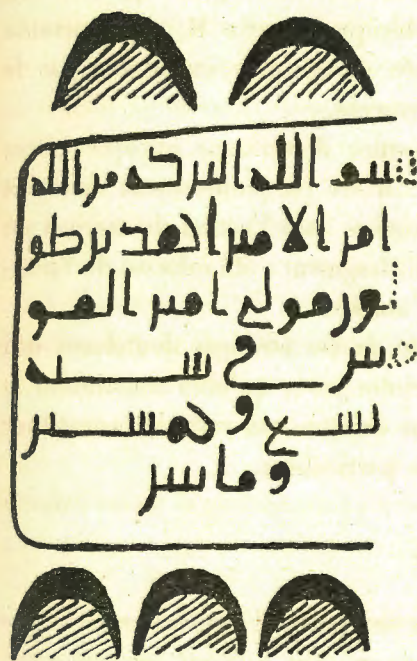 بسم الله البركه من الله
امر الامير احمد بن طو
لون مولى امير المو
منين في سنه
تسع وخمسين
ومايتين